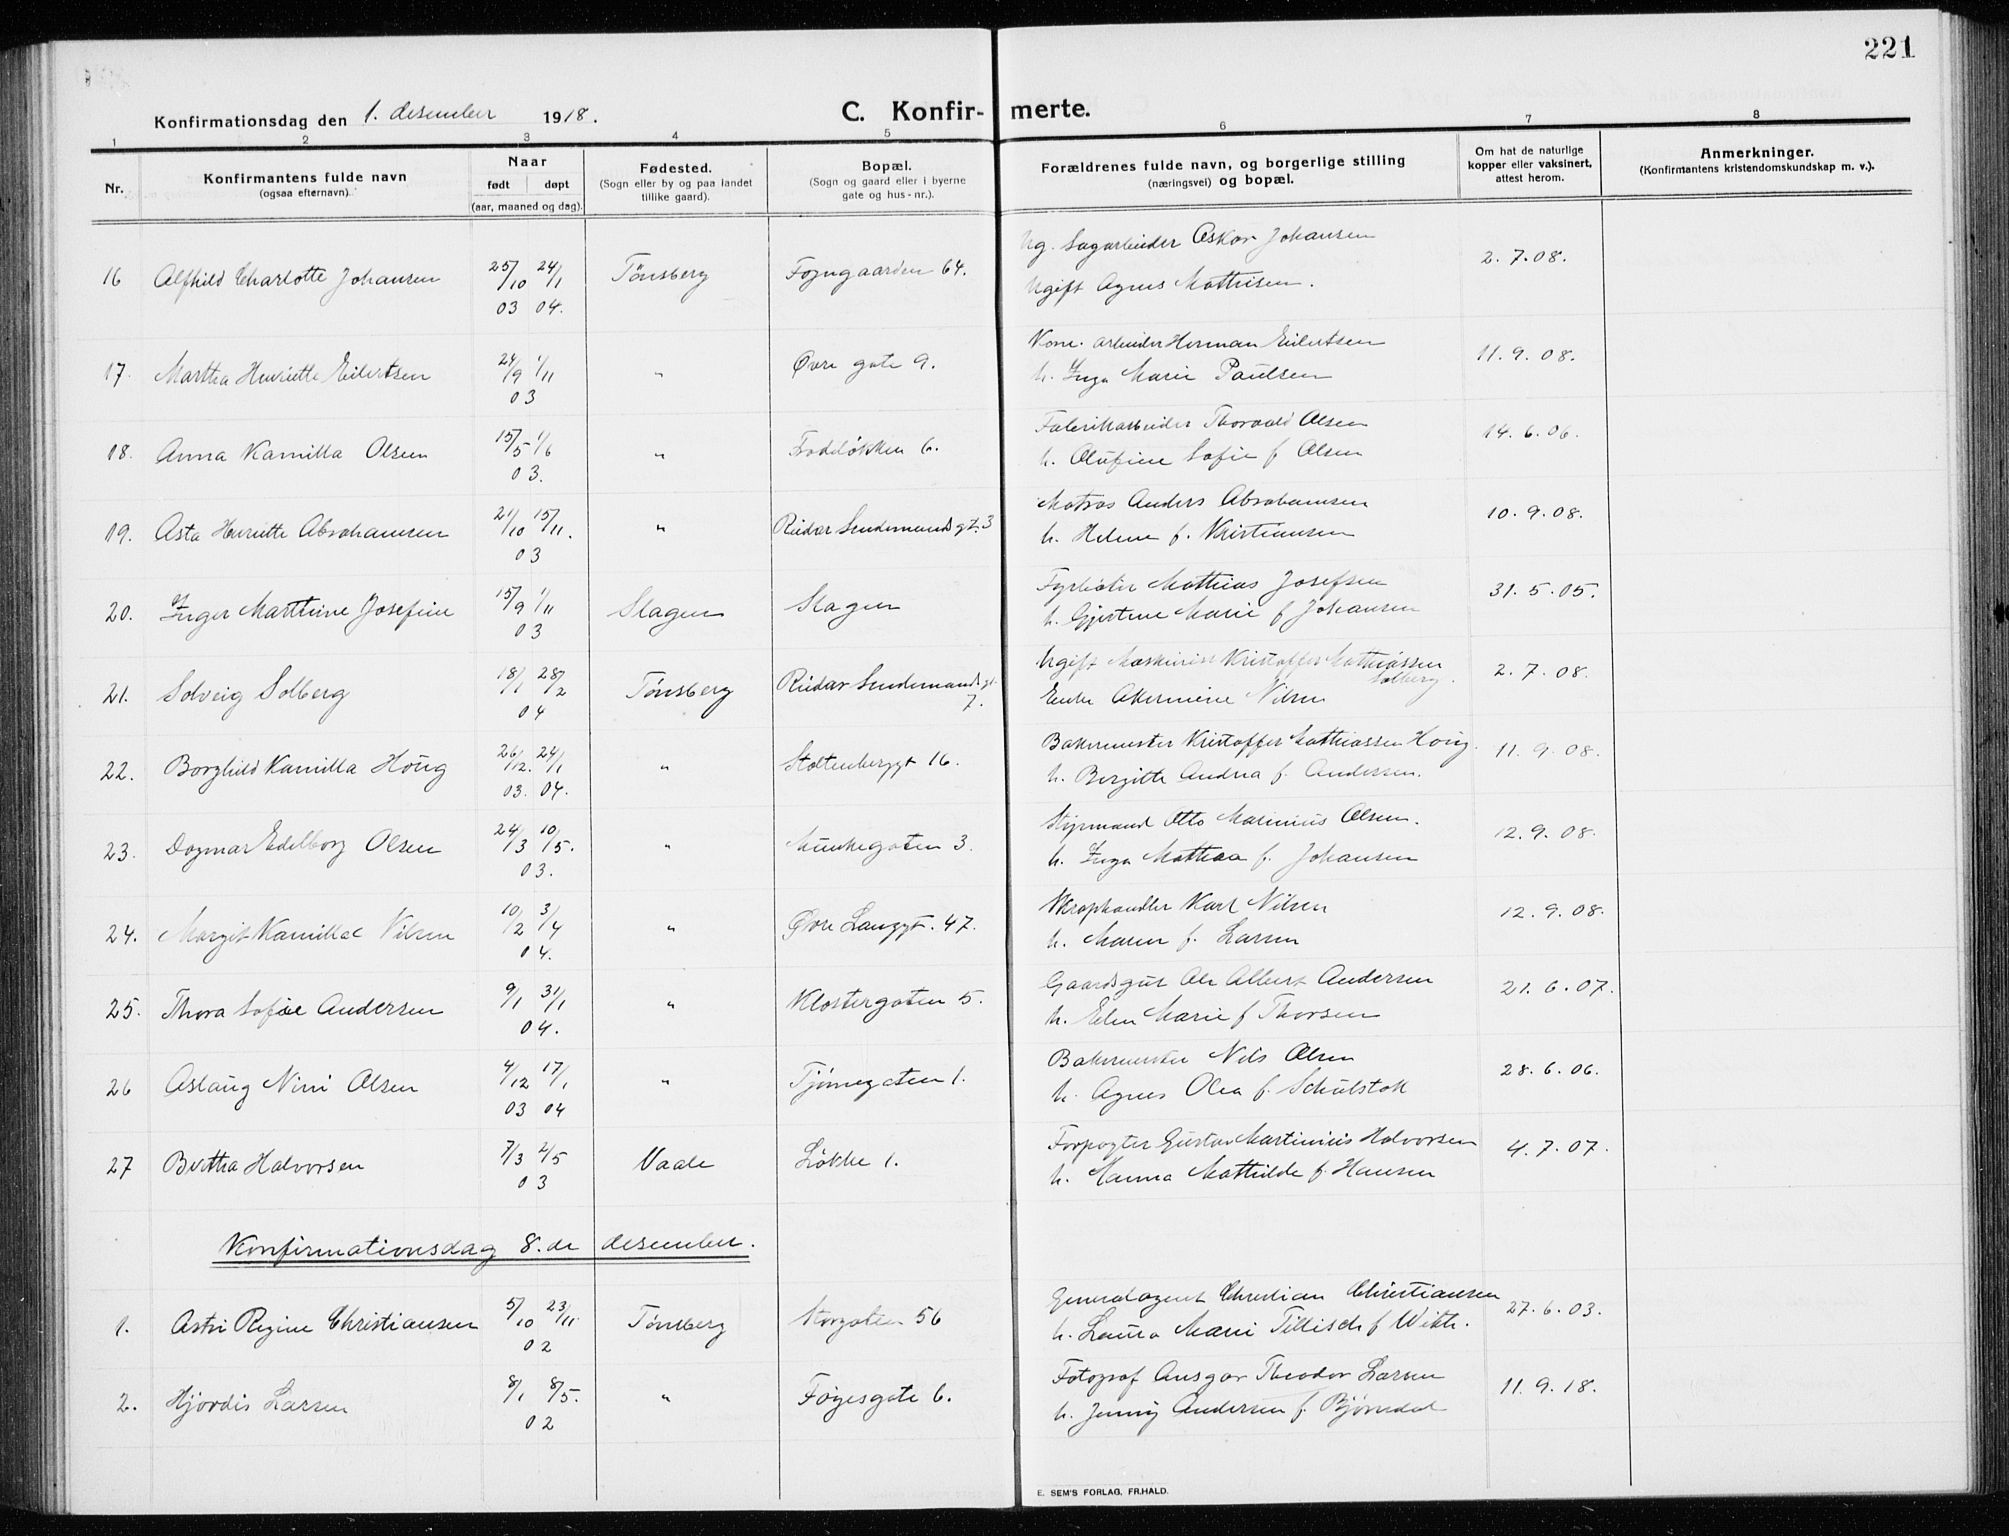 221
Konfirmationsdag den 1. desember 1918.
C. Konfirmerte.
1 2 3 4 5 6 7 8
Nr.
Konfirmantens fulde navn
(ogsaa efternavn).
Naar
født døpt
(aar, maaned og dag).
Fødested.
(Sogn eller by og paa landet
tillike gaard).
Bopæl.
(Sogn og gaard eller i byerne
gate og hus-nr.).
Forældrenes fulde navn, og borgerlige stilling
(næringsvei) og bopæl.
Om hat de naturlige
kopper eller vaksinert,
attest herom.
Anmerkninger.
(Konfirmantens kristendomskundskap m. v.).
16 Alfhild Charlotte Johansen 25/10 03 24/1 04. Tønsberg Foyngaarden 64. Ug. Sagarbeider Oskar Johansen 2.7.08.
Ugift Agnes Mathisen.
17. Martha Henriette Eilertsen 24/9 1/11 03 " Øvre gate 9. arbeider Herman Eilertsen 11.9.08.
h. Inga Marie Paulsen
18. Anna Kamilla Olsen 15/5 1/6 03. " Frodeløkken 6. Fabrikarbeider Thorvald Olsen 14.6.06.
h. Olufine Sofie f Olsen
19. Asta Henriette Abrahamsen 21/10 15/11. 03 " Reidar Sendemands gt. 3 Matros Anders Abrahamsen 10.9.08.
h. Helene f. Kristiansen
20. Inger Marthine Josefine 15/9 1/11 03 Slagen Slagen Fyrbøter Mathias Josefsen 31.5.05.
h. Gjertine Marie f Johansen
21. Solveig Solberg 18/1 28/2 04 Tønsberg Reidar Sendemands gt. 7. Ugift Maskinist Kristoffer Mathiassen Solberg. 2.7.08.
Enke Nilsen
22. Borghild Kamilla Houg 26/12. 03. 24/1 04. " Stoltenberggt 16. Bakermester Kristoffer Mathiassen Houg. 11.9.08.
h. Birgitte Andrea f. Andersen.
23. Dagmar Edelborg Olsen 24/3 10/5. 03. " Munkegaten 3. Styrmand Otto Marinius Olsen. 12.9.08.
h. Inga Mathea f. Johansen
24. Margit Kamilla Nilsen 10/2 3/4 04. " Øvre Langgt. 47. Skraphandler Karl Nilsen 12.9.08.
h. Maren f. Larsen
25. Thora Sofie Andersen 9/1 31/1 04. " Klostergaten 5. Gaardsgut Ole Albert Andersen 21.6.07.
h. Elen Marie f Thorsen
26 Aslaug Nini Olsen 4/12 03 17/1 04 " Tjømegaten 1. Bakermester Nils Olsen 28.6.06.
h. Agnes Olea f. Schulstok
27 Bertha Halvorsen 7/3 2/5 03 Vaale Løkke 1. Forpagter Gustav Martinius Halvorsen 4.7.07.
h. Hanna Mathilde f. Hansen
Konfirmationsdag 8.de desember.
1. Astri Regine Christiansen 5/10 23/11. 02 Tønsberg Storgaten 56 Generalagent Christian Christiansen 27.6.03.
h. Laura Marie Tillisch f Witth.
2. Hjørdis Larsen 8/1 8/5. 02 " Føyesgate 6. Fotograf Ansgar Theodor Larsen 11.9.18.
h. Jenny Andersen f. Bjørndal
E. SEM'S FORLAG, FR.HALD.